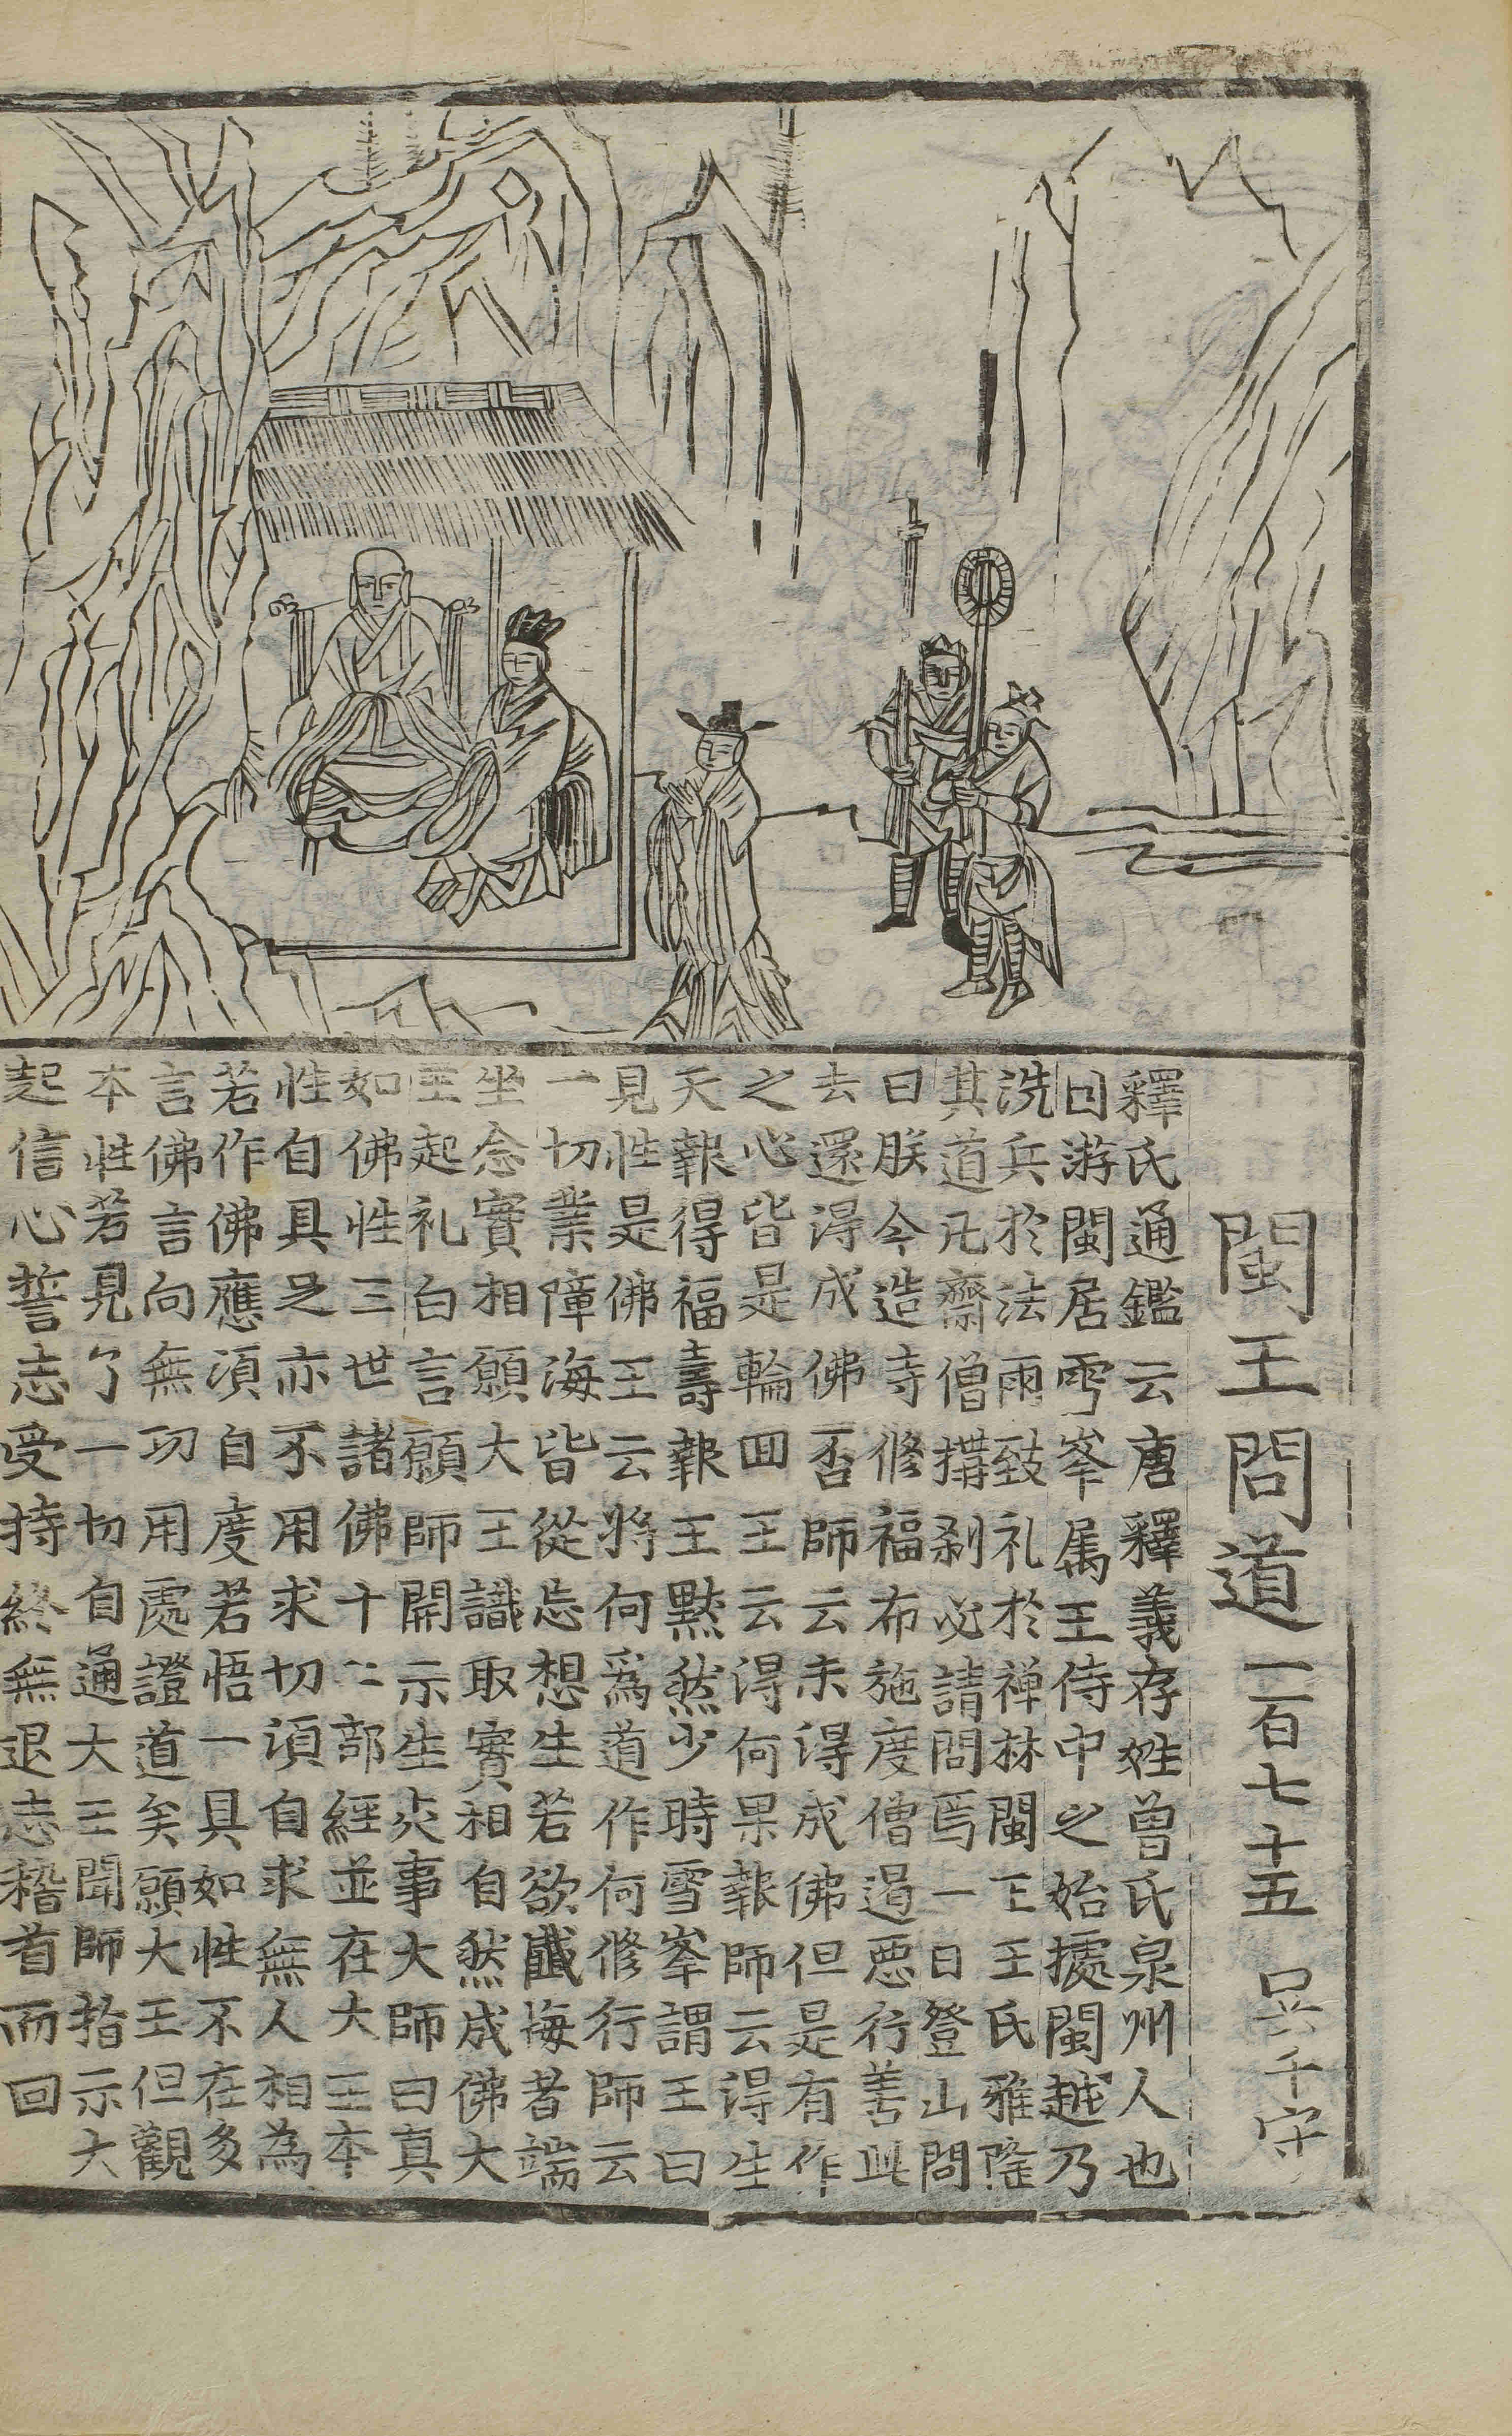 閩王問道一百七十五 千字
釋氏通鑑云唐釋義存姓曾氏泉州人也
因游閩居雪峯属王侍中之始據閩越乃
洗兵於法雨致礼於禅林閩王王氏雅隆
其道凡齋僧搆剎必請問焉一日登山問
曰朕今造寺修福布施度僧遏悪行善此
去還得成佛否師云未得成佛但是有作
之心皆是輪回王云得何果報師云得生
天報得福壽報王黙然少時雪峯謂王曰
見性是佛王云將何爲道作何修行師云
一切業障海皆從忘想生若欲懺悔者端
坐念實相願大王識取實相自然成佛大
王起礼白言願師開示生灾事大師曰真
如佛性三世諸佛十二部經並在大王本
性自具足亦不用求切須自求無人相為
若作佛應須自度若悟一具如性不在多
言佛言向無功用處證道矣願大王但觀
本性若見了一切自通大王聞師指示大
起信心誓志受持終無退志稽首而回